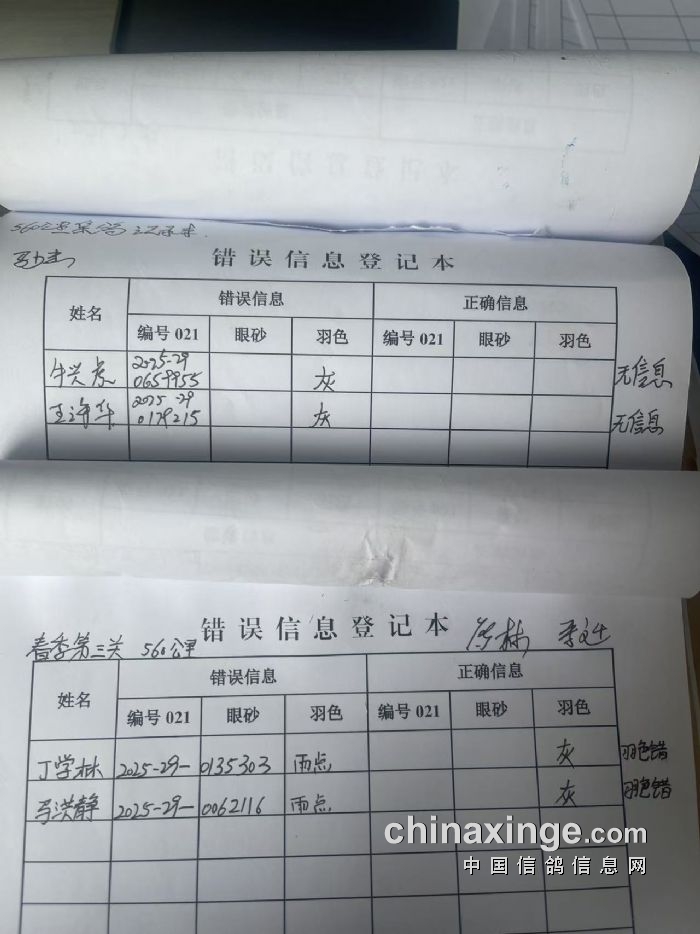 错误信息登记本
姓名 错误信息 正确信息
编号 021 眼砂 羽色 编号 021 眼砂 羽色
牛兴虎 2025-29 0659955 灰 无信息
2025 29 0179215 灰 无信息
错误信息登记本
春季第三关 560公里
姓名 错误信息 正确信息
编号 021 眼砂 羽色 编号 021 眼砂 羽色
丁学林 2025-29- 0135303 雨点 灰 羽色错
马洪静 2025-29- 0062116 雨点 灰 羽色错
chinaxinge.com
中国信鸽信息网